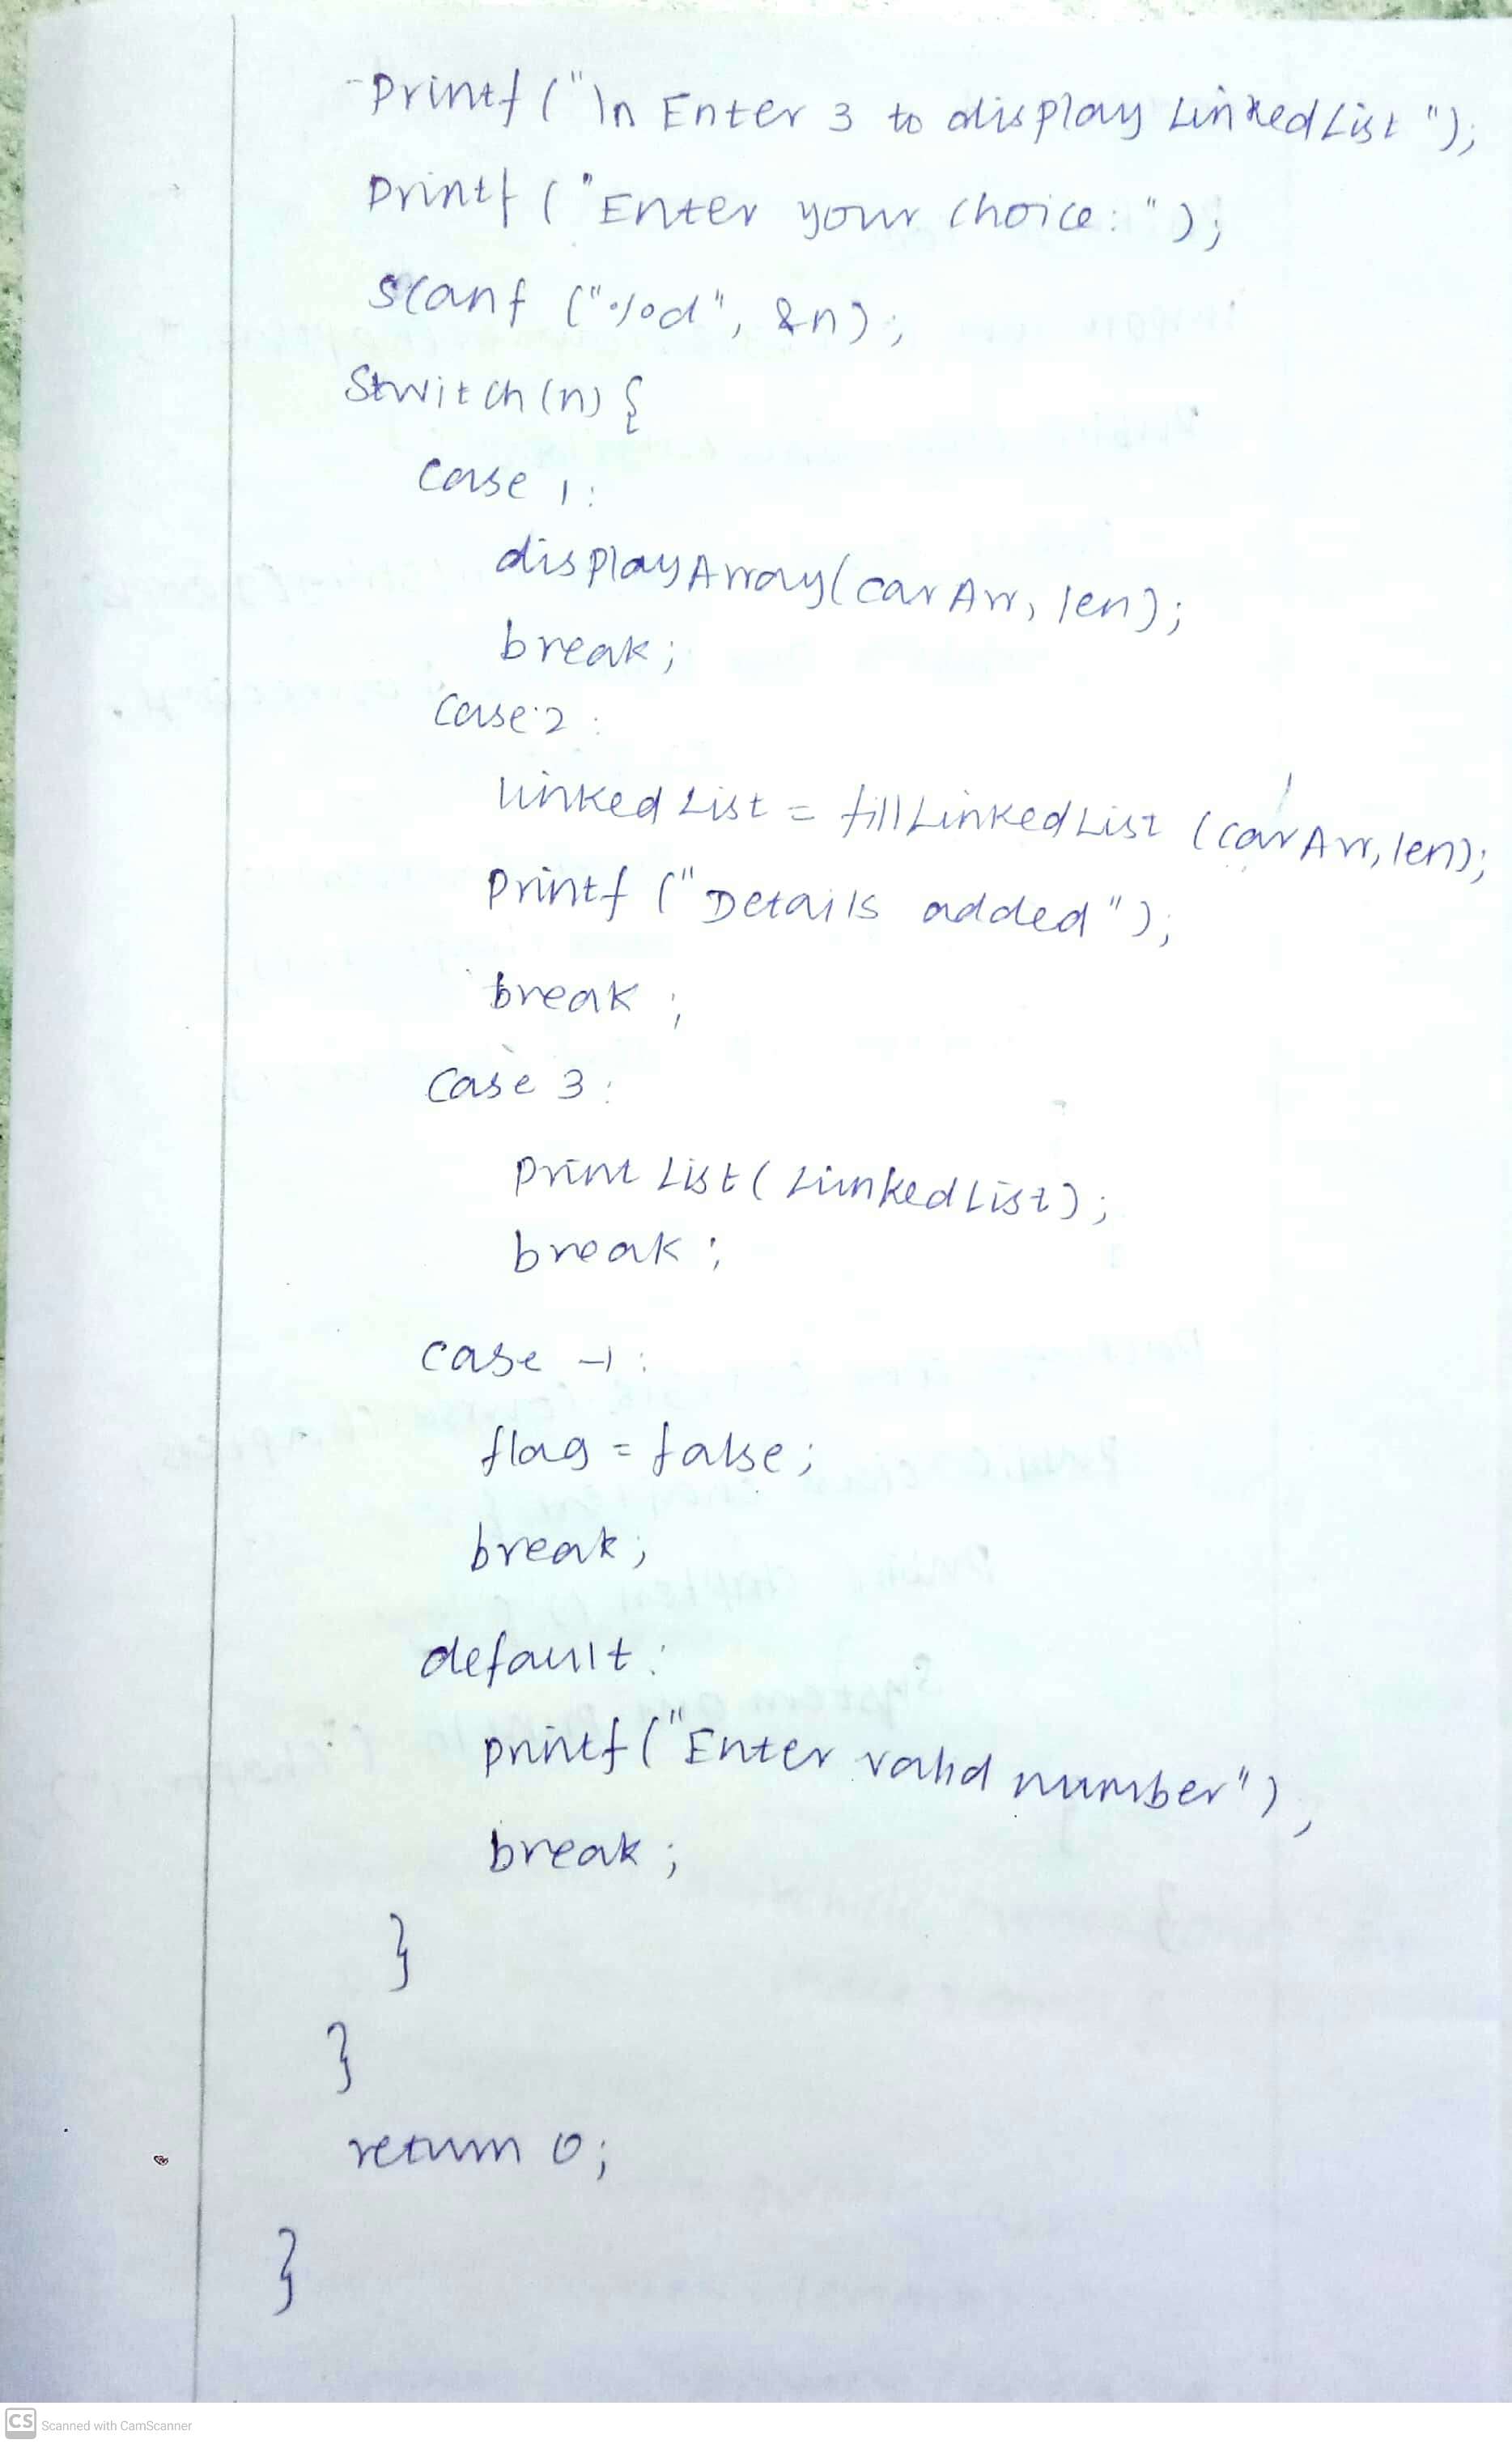 Printf ("\n Enter 3 to display Linked List ");
Printf ("Enter your choice: ");
scanf ("%d", &n);
Switch (n) {
case 1:
display Array (car Arr, len);
break;
case 2:
linked List = fill Linked List (car Arr, len);
Printf ("Details added");
break ;
case 3:
print List ( Linked List );
break ;
case -1 :
flag = false;
break;
default:
printf ("Enter valid number"),
break ;
}
}
return 0;
}
CS Scanned with CamScanner